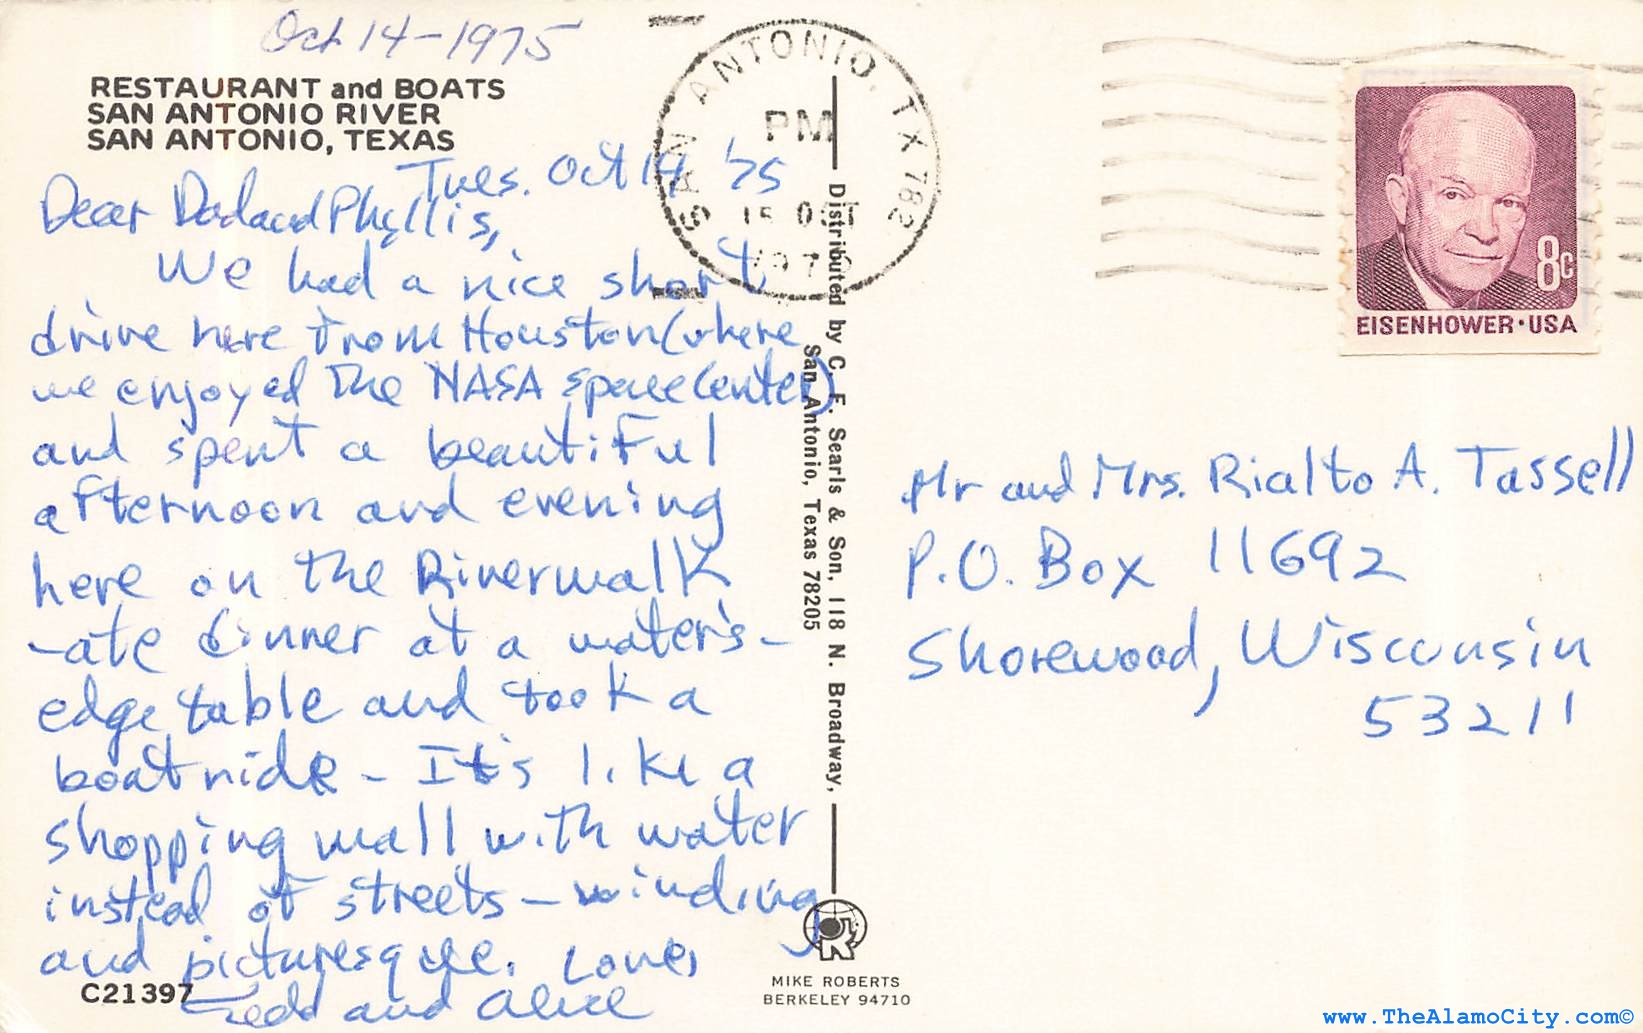 Oct 14-1975
RESTAURANT and BOATS
SAN ANTONIO RIVER
SAN ANTONIO, TEXAS
Tues. Oct 14 '75
Dear Dad and Phyllis,
We had a nice short
drive here from Houston (where
we enjoyed the NASA space center)
and spent a beautiful
afternoon and evening
here on the Riverwalk
-ate dinner at a water's-
edge table and took a
boat ride - It's like a
shopping mall with water
instead of streets - winding
and picturesque. Love,
and Alice
C21397
SAN ANTONIO, TX 782
PM
15 OCT
197
Distributed by C. F. Searls & Son, 118 N. Broadway,
San Antonio, Texas 78205
MIKE ROBERTS
BERKELEY 94710
8c
EISENHOWER·USA
Mr and Mrs. Rialto A. Tassell
P.O. Box 11692
Shorewood, Wisconsin
53211
www.TheAlamoCity.com©